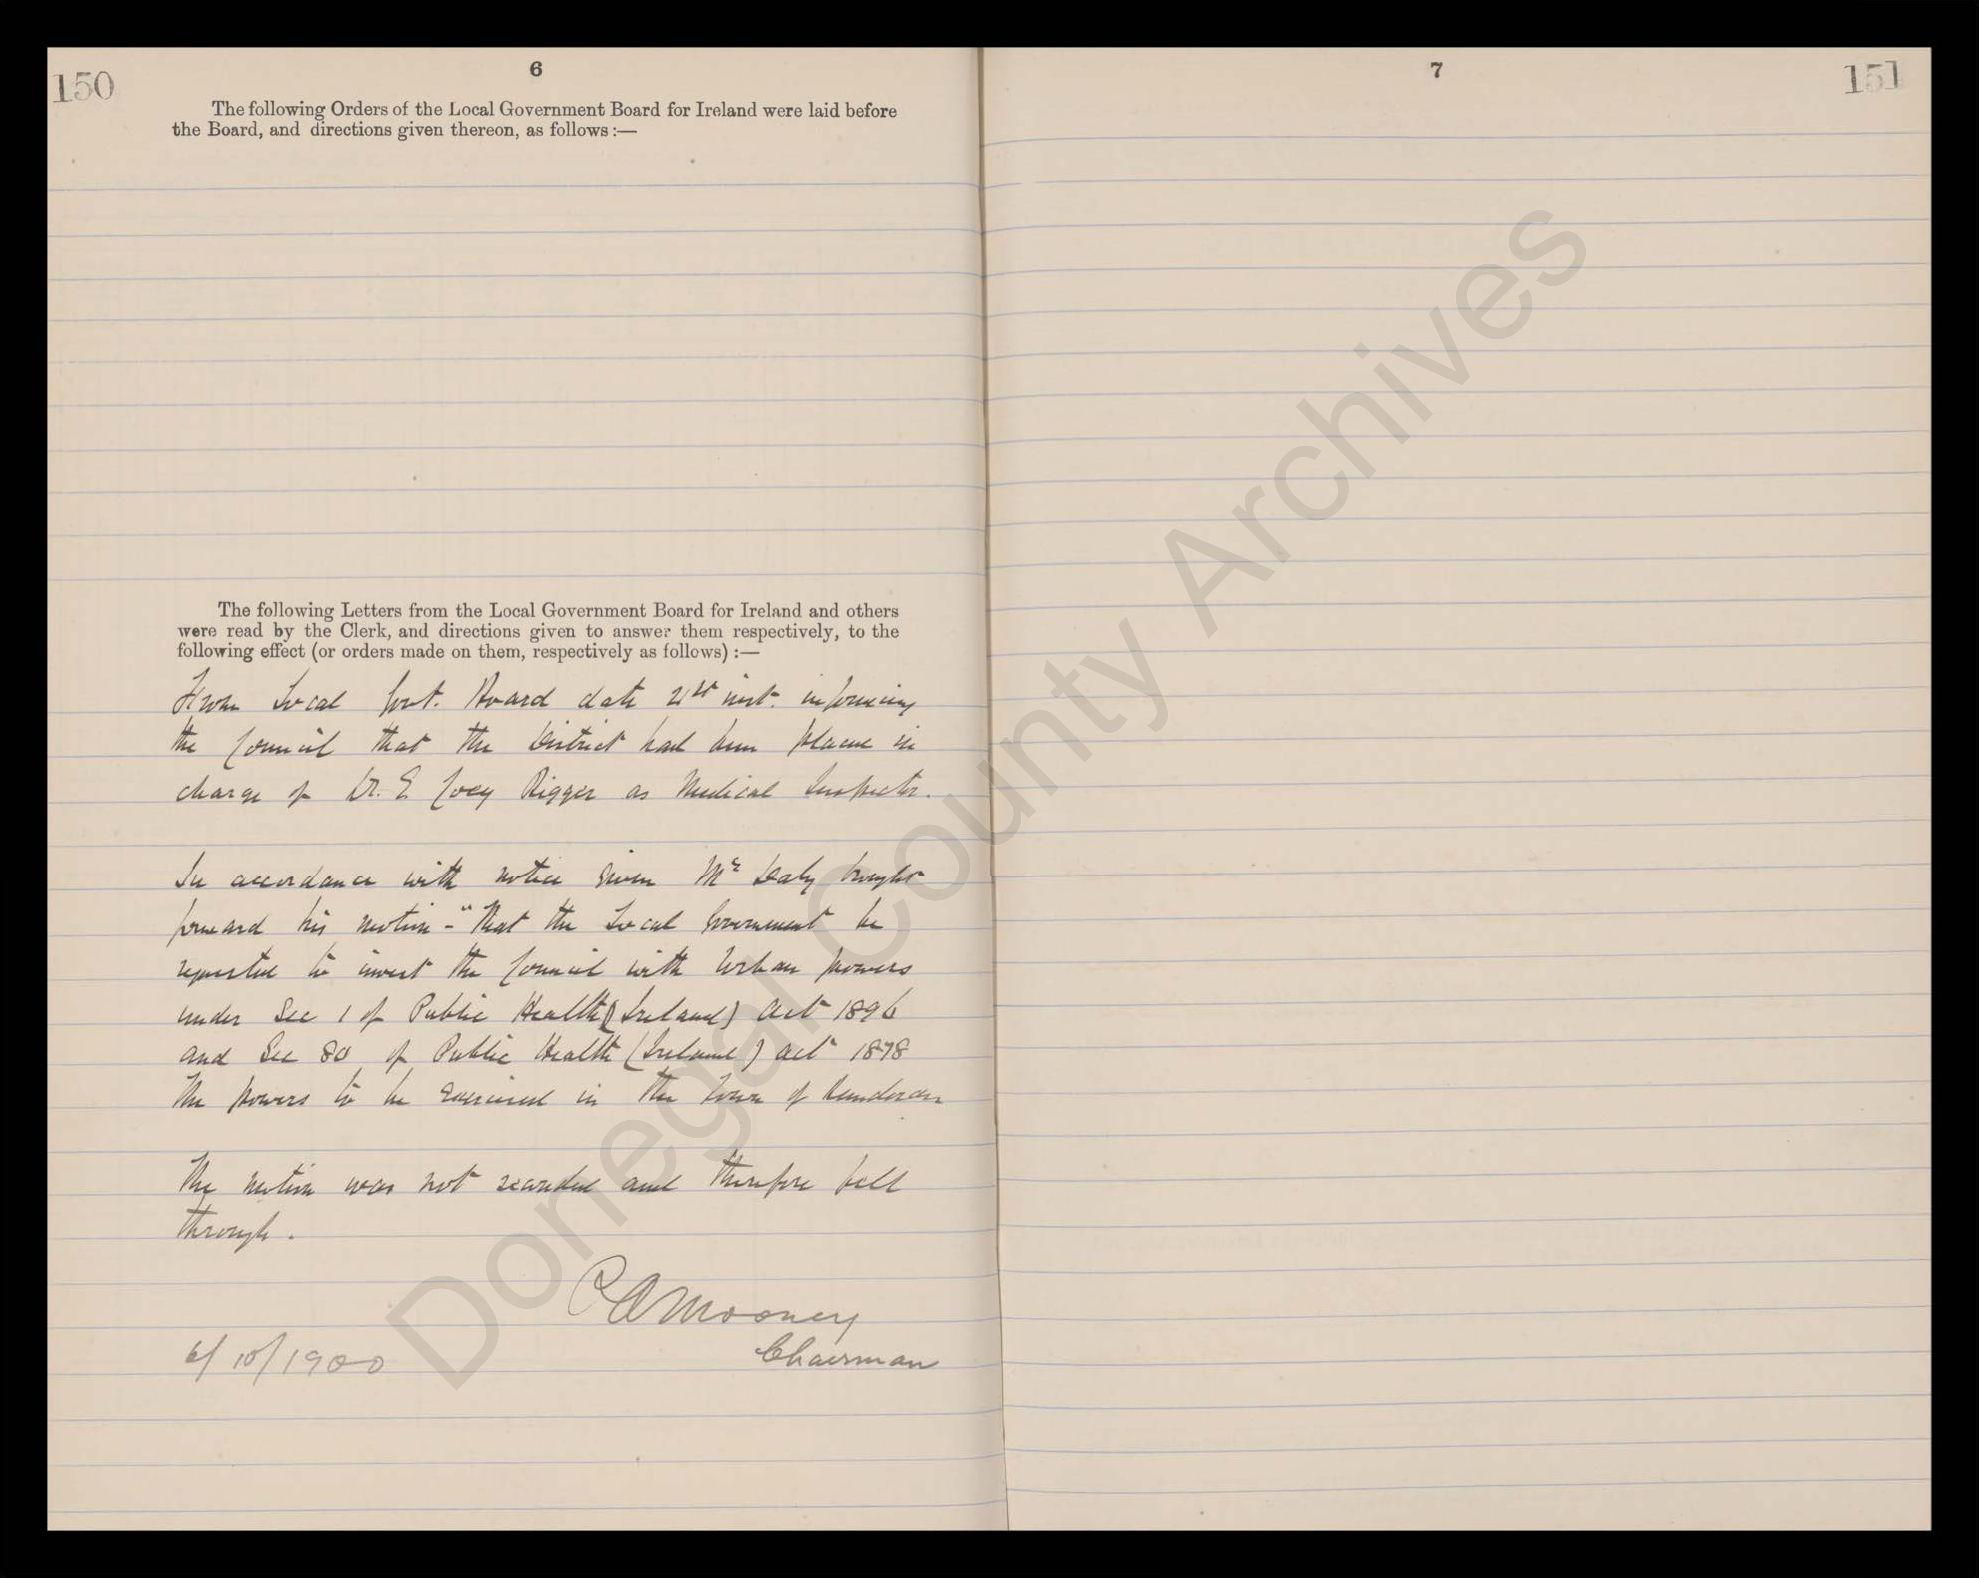 150
6
The following Orders of the Local Government Board for Ireland were laid before
the Board, and directions given thereon, as follows :—
The following Letters from the Local Government Board for Ireland and others
were read by the Clerk, and directions given to answer them respectively, to the
following effect (or orders made on them, respectively as follows) :—
From Local Govt. Board date 21st inst. informing
the Council that the District had been placed in
charge of Dr. E Coey Bigger as Medical Inspector.
In accordance with notice given Mr Daly brought
forward his motion - "That the Local Government be
requested to invest the Council with Urban powers
under Sec 1 of Public Health (Ireland) Act 1896
and Sec 80 of Public Health (Ireland) Act 1878
The powers to be exercised in the Town of Bundoran
The motion was not seconded and therefore fell
through.
P A Mooney
6/10/1900 Chairman
7
151
Donegal County Archives